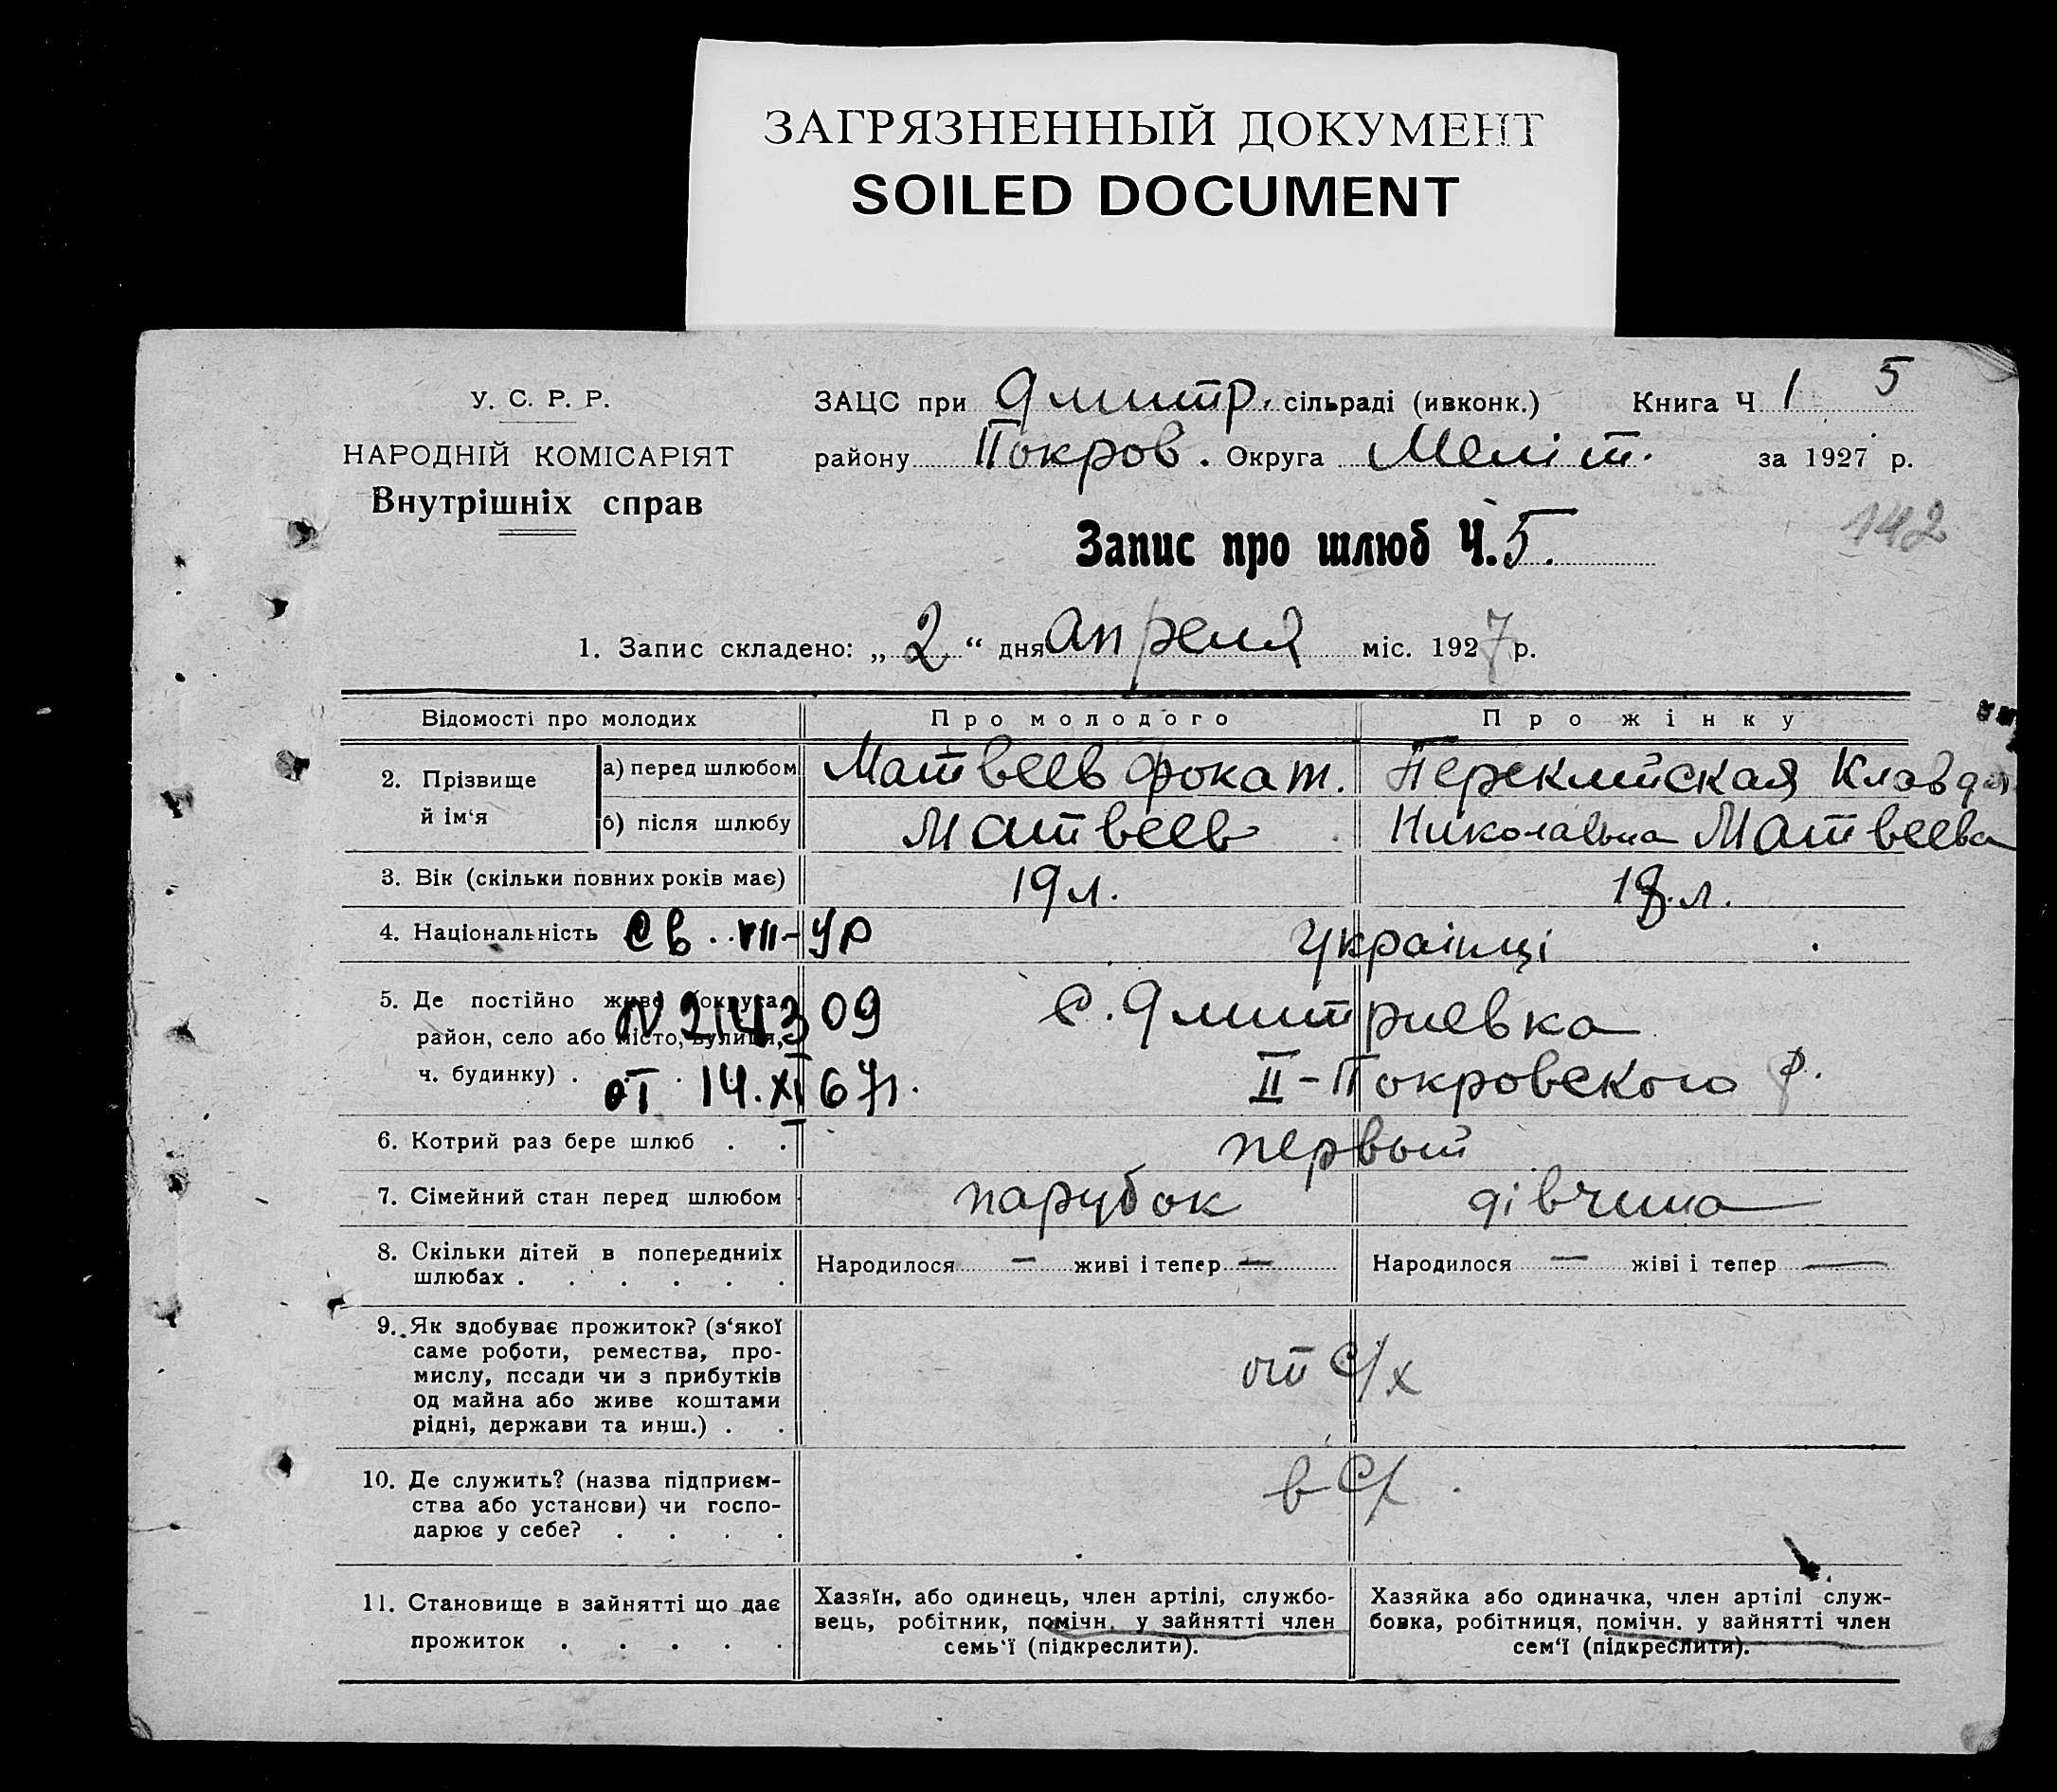 ЗАГРЯЗНЕННЫЙ ДОКУМЕНТ
SOILED DOCUMENT
У. С. Р. Р.
НАРОДНІЙ КОМІСАРІЯТ
Внутрішніх справ
ЗАЦС при Дмитр. сільраді (ивконк.) Книга Ч 1 5
району Покров. Округа Меліт. за 1927 р.
Запис про шлюб Ч. 5.
142
1. Запис складено: „ 2 “ дня апреля міс. 1927 р.
Відомості про молодих Про молодого Про жінку
2. Прізвище й ім‘я
а) перед шлюбом Матвеев Фока т. Клавдия
б) після шлюбу Матвеев Николаевна Матвеева
3. Вік (скільки повних років має) 19 л. 18. л.
4. Національність Українці
Св. VII-УР
5. Де постійно живе (округа, район, село або місто, вулиця, ч. будинку) . с. Дмитриевка
II-Покровского р.
N 214309
от 14.XI 67г.
6. Котрий раз бере шлюб . . первый
7. Сімейний стан перед шлюбом парубок дівчина
8. Скільки дітей в попередниіх Народилося — живі і тепер — Народилося — жіві і тепер —
шлюбах . . . . . .
9. Як здобуває прожиток? (з‘якої
саме роботи, ремества, про-
мислу, посади чи з прибутків от с/х
од майна або живе коштами
рідні, держави та инш.) . .
10. Де служить? (назва підприєм- в с/х
ства або установи) чи госпо-
дарює у себе? . . . .
11. Становище в зайнятті що дає
прожиток . . . . .
Хазяїн, або одинець, член артілі, службо-
вець, робітник, помічн. у зайнятті член
семь‘ї (підкреслити).
Хазяйка або одиначка, член артілі служ-
бовка, робітниця, помічн. у зайнятті член
сем‘ї (підкреслити).